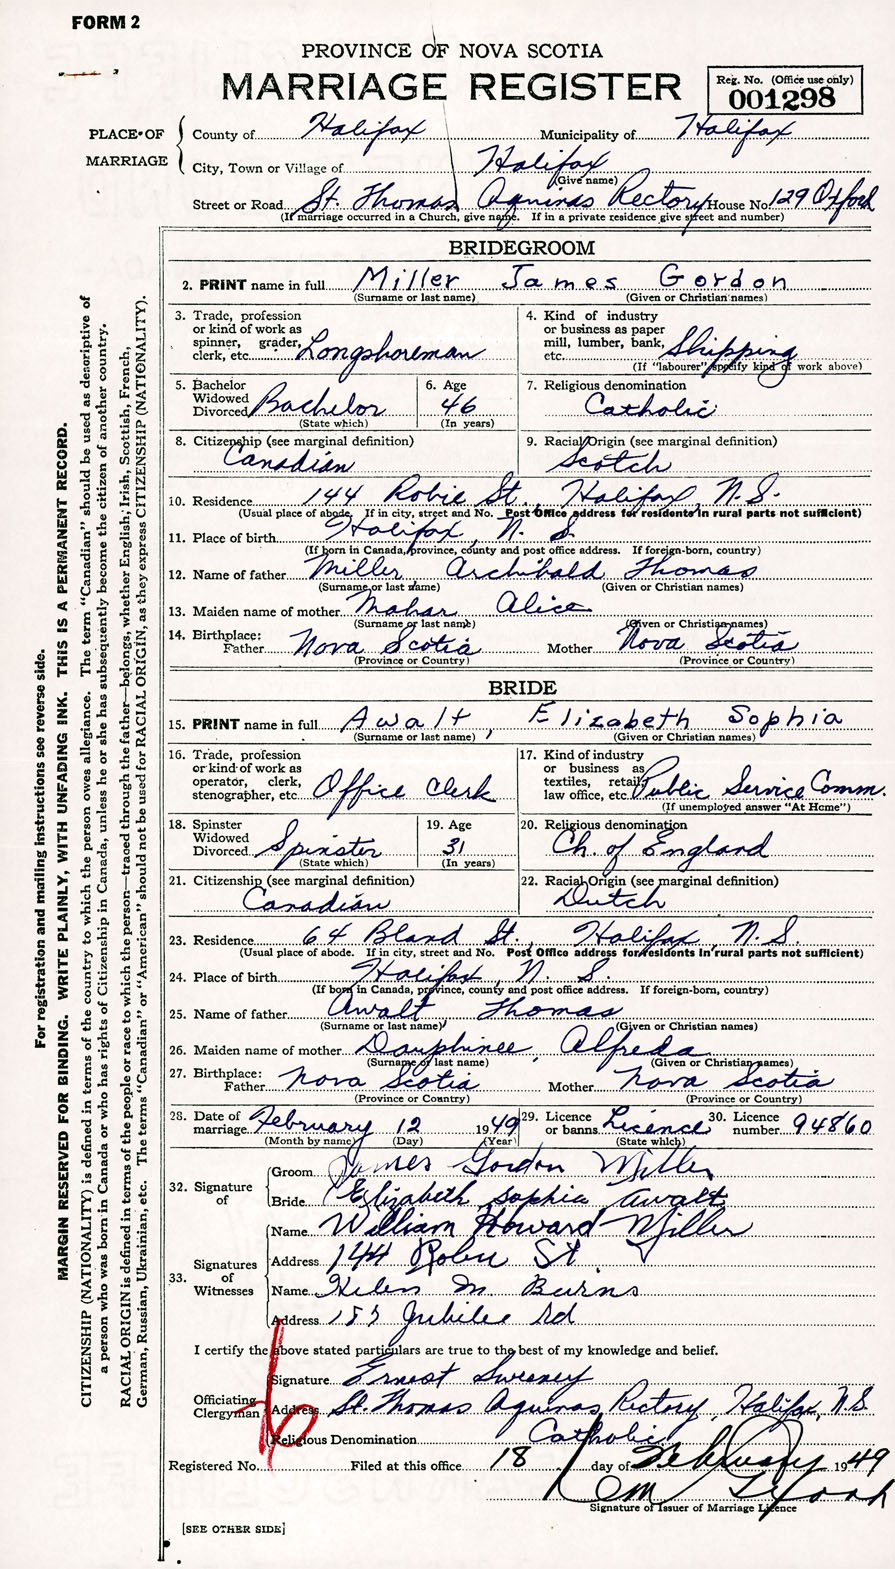 FORM 2
PROVINCE OF NOVA SCOTIA
MARRIAGE REGISTER
Reg. No. (Office use only)
001298
PLACE OF MARRIAGE
County of Halifax Municipality of Halifax
City, Town or Village of Halifax
(Give name)
Street or Road St. Thomas Aquinas Rectory House No. 129 Oxford
(If marriage occurred in a Church, give name. If in a private residence give street and number)
BRIDEGROOM
2. PRINT name in full Miller James Gordon
(Surname or last name) (Given or Christian names)
3. Trade, profession or kind of work as spinner, grader, clerk, etc. Longshoreman
4. Kind of industry or business as paper mill, lumber, bank, etc. Shipping
(If "labourer" specify kind of work above)
5. Bachelor Widowed Divorced Bachelor
(State which)
6. Age 46
(In years)
7. Religious denomination Catholic
8. Citizenship (see marginal definition) Canadian
9. Racial Origin (see marginal definition) Scotch
10. Residence 144 Robie St., Halifax, N.S.
(Usual place of abode. If in city, street and No. Post Office address for residents in rural parts not sufficient)
11. Place of birth Halifax, N. S.
(If born in Canada, province, county and post office address. If foreign-born, country)
12. Name of father Miller Archibald Thomas
(Surname or last name) (Given or Christian names)
13. Maiden name of mother Mahar Alice
(Surname or last name) (Given or Christian names)
14. Birthplace: Father Nova Scotia Mother Nova Scotia
(Province or Country) (Province or Country)
BRIDE
15. PRINT name in full Awalt, Elizabeth Sophia
(Surname or last name) (Given or Christian names)
16. Trade, profession or kind of work as operator, clerk, stenographer, etc. Office Clerk
17. Kind of industry or business as textiles, retail, law office, etc. Public Service Comm.
(If unemployed answer "At Home")
18. Spinster Widowed Divorced Spinster
(State which)
19. Age 31
(In years)
20. Religious denomination Ch. of England
21. Citizenship (see marginal definition) Canadian
22. Racial Origin (see marginal definition) Dutch
23. Residence 64 Bland St., Halifax, N.S.
(Usual place of abode. If in city, street and No. Post Office address for residents in rural parts not sufficient)
24. Place of birth Halifax, N. S.
(If born in Canada, province, county and post office address. If foreign-born, country)
25. Name of father Awalt, Thomas
(Surname or last name) (Given or Christian names)
26. Maiden name of mother Dauphinee, Alfreda
(Surname or last name) (Given or Christian names)
27. Birthplace: Father Nova Scotia Mother Nova Scotia
(Province or Country) (Province or Country)
28. Date of marriage February 12 1949
(Month by name) (Day) (Year)
29. Licence or banns Licence
(State which)
30. Licence number 94860
32. Signature of
Groom James Gordon Miller
Bride Elizabeth Sophia Awalt
33. Signatures of Witnesses
Name William Howard Miller
Address 144 Robie St
Name Helen M. Burns
Address Jubilee Rd
I certify the above stated particulars are true to the best of my knowledge and belief.
Officiating Clergyman
Signature Ernest Sweeney
Address St. Thomas Aquinas Rectory, Halifax, N.S.
Religious Denomination Catholic
Registered No. Filed at this office 18 day of February 1949
Signature of Issuer of Marriage Licence
[SEE OTHER SIDE]
For registration and mailing instructions see reverse side.
MARGIN RESERVED FOR BINDING. WRITE PLAINLY, WITH UNFADING INK. THIS IS A PERMANENT RECORD.
CITIZENSHIP (NATIONALITY) is defined in terms of the country to which the person owes allegiance. The term "Canadian" should be used as descriptive of
a person who was born in Canada or who has rights of Citizenship in Canada, unless he or she has subsequently become the citizen of another country.
RACIAL ORIGIN is defined in terms of the people or race to which the person—traced through the father—belongs, whether English, Irish, Scottish, French,
German, Russian, Ukrainian, etc. The terms "Canadian" or "American" should not be used for RACIAL ORIGIN, as they express CITIZENSHIP (NATIONALITY).